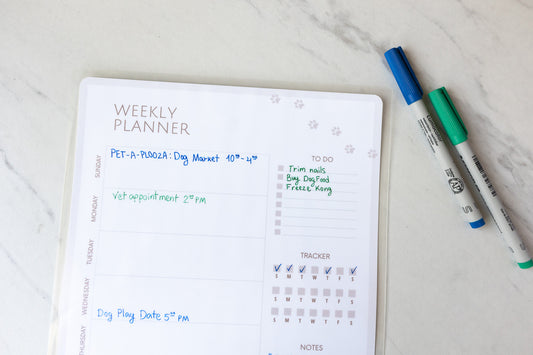 WEEKLY
PLANNER
SUNDAY
PET-A-PLOOZA: Dog Market 10⁰⁰-4⁰⁰
MONDAY
Vet appointment 2⁰⁰ PM
TUESDAY
WEDNESDAY
Dog Play Date 5⁰⁰ PM
THURSDAY
TO DO
Trim nails
Buy Dog Food
Freeze Kong
TRACKER
S M T W T F S
S M T W T F S
S M T W T F S
NOTES